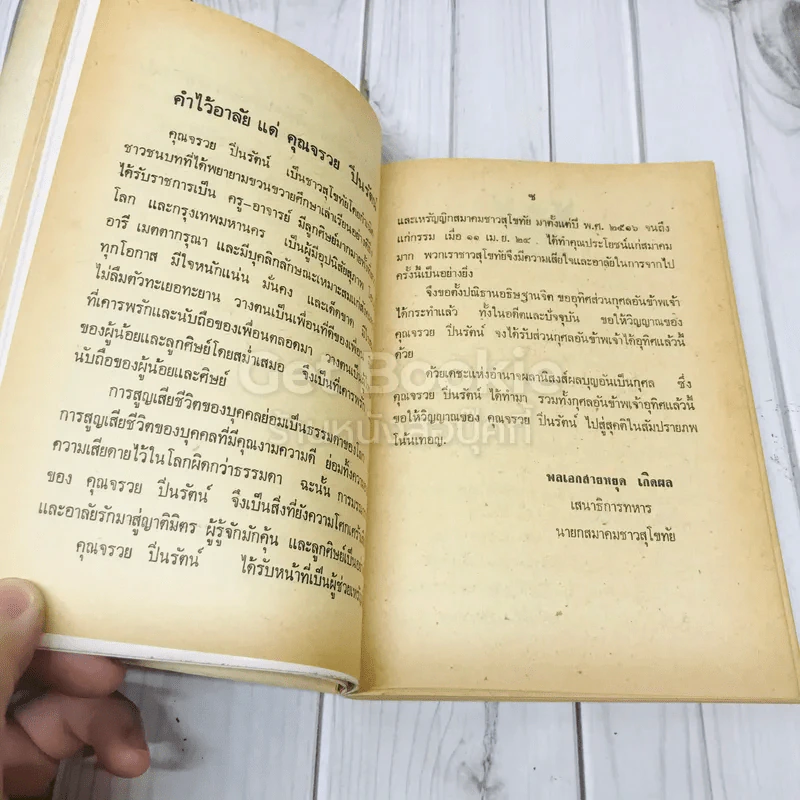 คำไว้อาลัย แด่ คุณจรวย ปีนรัตน์
คุณจรวย ปีนรัตน์ เป็นชาวสุโขทัยโดยกำเนิด
ชาวชนบทที่ได้พยายามขวนขวายศึกษาเล่าเรียนอย่างดียิ่ง
ได้รับราชการเป็น ครู-อาจารย์ มีลูกศิษย์มากมายทั้งที่
โลก และกรุงเทพมหานคร เป็นผู้มีอุปนิสัยสุภาพ
อารี เมตตากรุณา และมีบุคลิกลักษณะเหมาะสมแก่
ทุกโอกาส มีใจหนักแน่น มั่นคง และเด็ดขาด
ไม่ลืมตัวทะเยอทะยาน วางตนเป็นเพื่อนที่ดีของเพื่อน
ที่เคารพรักและนับถือของเพื่อนตลอดมา วางตนเป็น
ของผู้น้อยและลูกศิษย์โดยสม่ำเสมอ จึงเป็นที่เคารพรัก
นับถือของผู้น้อยและศิษย์
การสูญเสียชีวิตของบุคคลย่อมเป็นธรรมดาของโลก
การสูญเสียชีวิตของบุคคลที่มีคุณงามความดี ย่อมทิ้งความ
ความเสียดายไว้ในโลกผิดกว่าธรรมดา ฉะนั้น การมรณ
ของ คุณจรวย ปีนรัตน์ จึงเป็นสิ่งที่ยังความโศกเศร้า
และอาลัยรักมาสู่ญาติมิตร ผู้รู้จักมักคุ้น และลูกศิษย์เป็น
คุณจรวย ปีนรัตน์ ได้รับหน้าที่เป็นผู้ช่วย
ซ
และเหรัญญิกสมาคมชาวสุโขทัย มาตั้งแต่ปี พ.ศ. ๒๕๑๖ จนถึง
แก่กรรม เมื่อ ๑๑ เม.ย. ๒๔ . ได้ทำคุณประโยชน์แก่สมาคม
มาก พวกเราชาวสุโขทัยจึงมีความเสียใจและอาลัยในการจากไป
ครั้งนี้เป็นอย่างยิ่ง
จึงขอตั้งปณิธานอธิษฐานจิต ขออุทิศส่วนกุศลอันข้าพเจ้า
ได้กระทำแล้ว ทั้งในอดีตและปัจจุบัน ขอให้วิญญาณของ
คุณจรวย ปีนรัตน์ จงได้รับส่วนกุศลอันข้าพเจ้าได้อุทิศแล้วนี้
ด้วย
ด้วยเดชะแห่งอำนาจผลานิสงส์ผลบุญอันเป็นกุศล ซึ่ง
คุณจรวย ปีนรัตน์ ได้ทำมา รวมทั้งกุศลอันข้าพเจ้าอุทิศแล้วนี้
ขอให้วิญญาณของ คุณจรวย ปีนรัตน์ ไปสู่สุคติในสัมปรายภพ
โน้นเทอญ.
พลเอกสายหยุด เกิดผล
เสนาธิการทหาร
นายกสมาคมชาวสุโขทัย
Get Bookie
ร้านหนังสือบุ๊คกี้